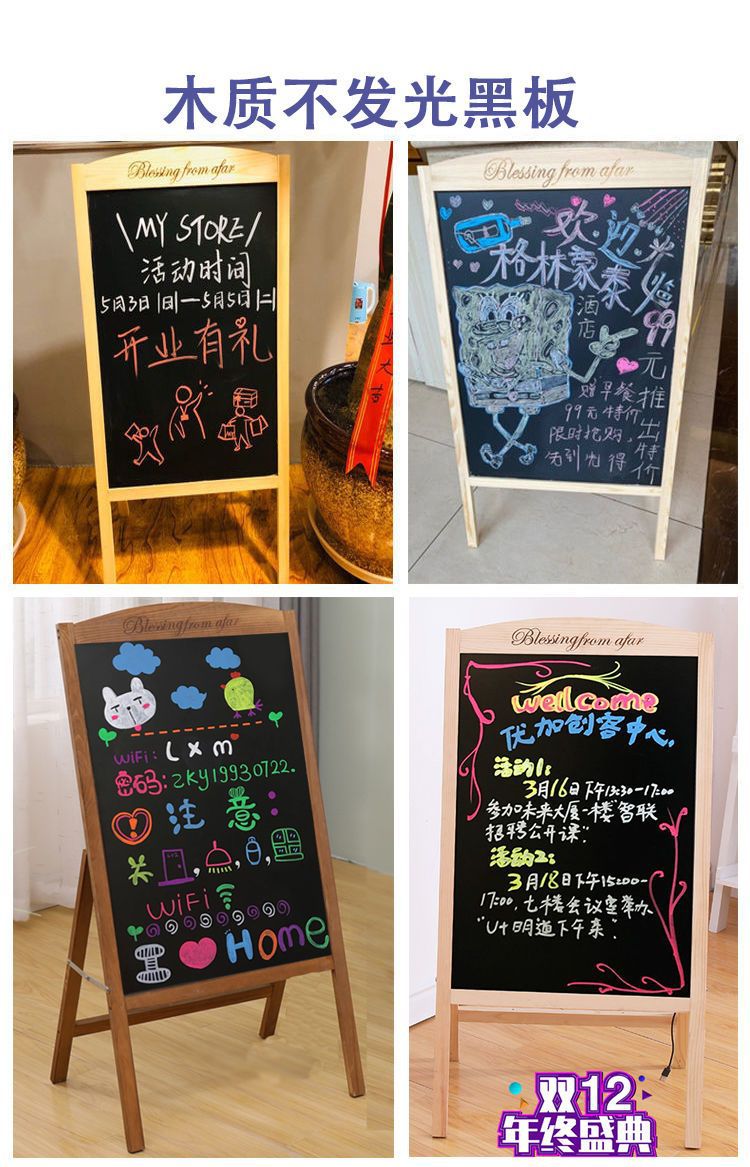 木质不发光黑板
Blessing from afar
\MY STORE/
活动时间
5月3日|日|—5月5日|二|
开业有礼
大吉
Blessing from afar
欢迎光临
格林豪泰
酒店
99元推出特价
赠早餐
99元特价
限时抢购,
先到先得
Blessing from afar
WiFi: Lxm
密码: zky19930722.
注意:
关 , , ,
WiFi
Home
Blessing from afar
wellcome
优加创客中心.
活动1:
3月16日下午13:30-17:00
参加未来大厦一楼"智联
招聘公开课"
活动2:
3月18日下午15:00-
17:00,七楼会议室举办
"U+明道下午茶".
双12
年终盛典